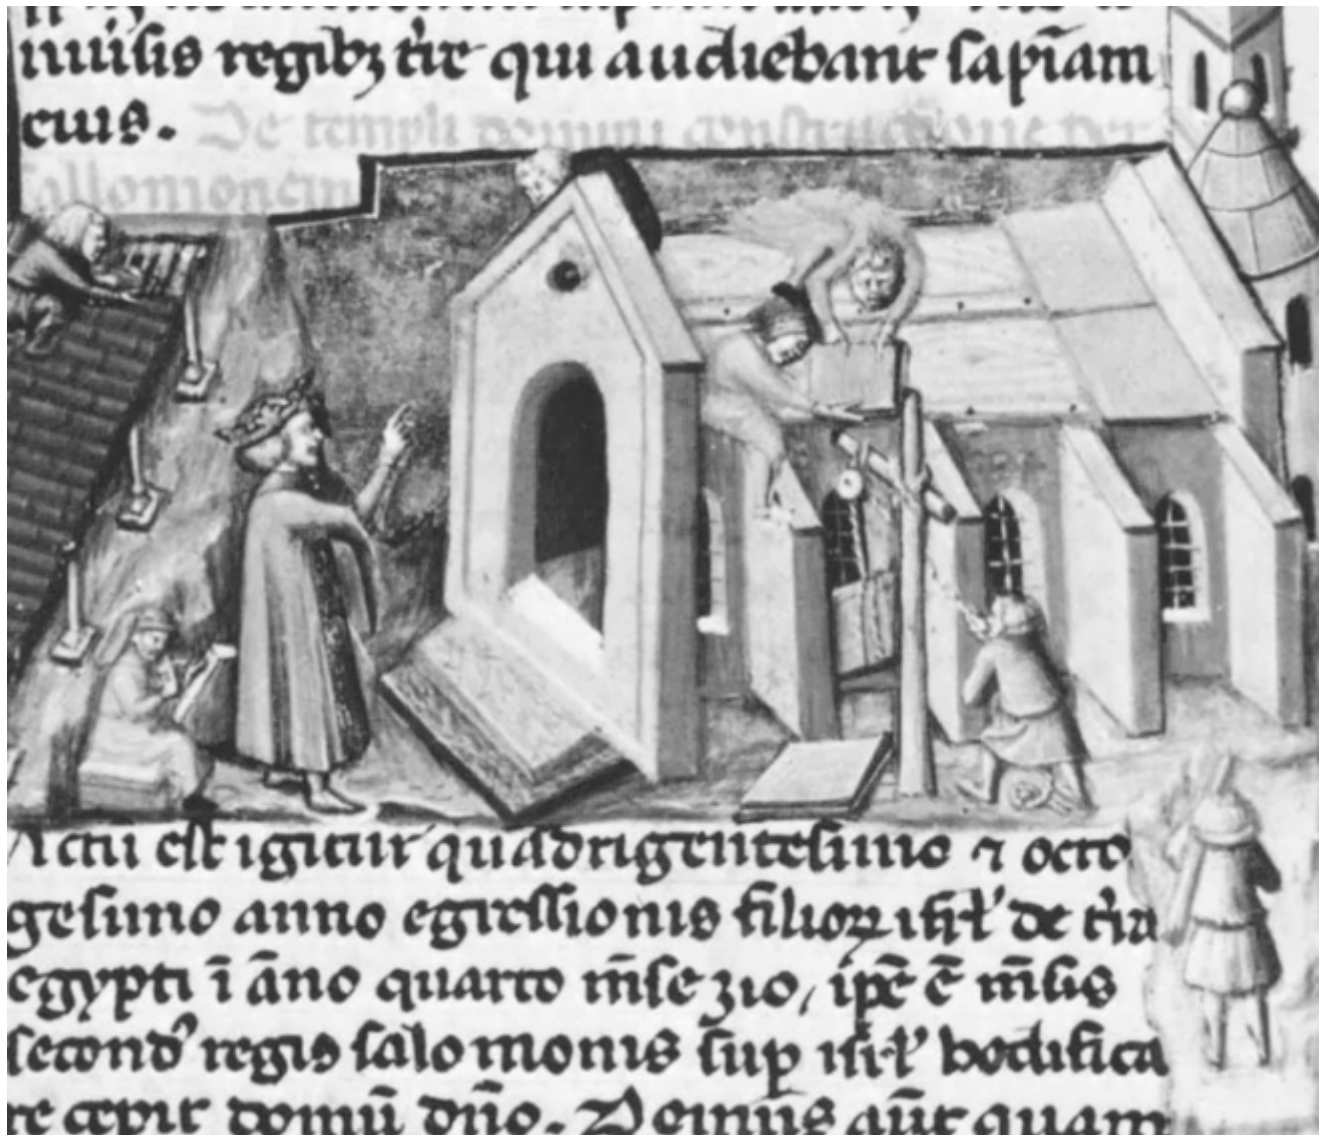 iuisis regibz t̄re qui audiebant sapīam
eius. De templi domini constructione per
sallomonem
Actū est igitur quadrigentesimo ⁊ octo
gesimo anno egressionis filioꝝ isrl̓ de t̄ra
egypti ī āno quarto m̄se zio, ip̄e ē m̄sis
secondꝰ regis salomonis sup isrl̓ hedifica
re cepit domū dn̄o. Domus aūt quam